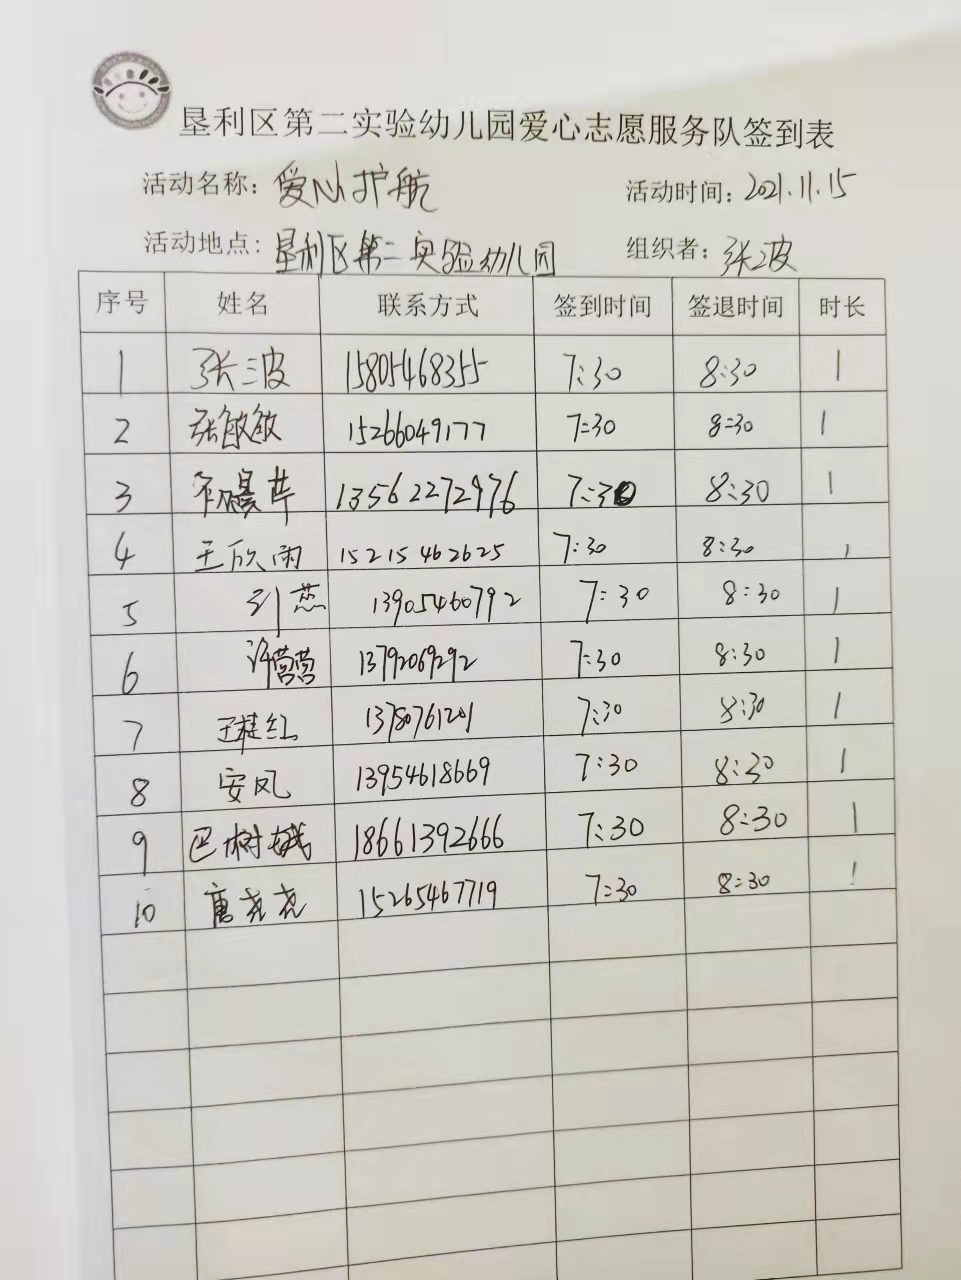 垦利区第二实验幼儿园爱心志愿服务队签到表
活动名称：爱心护航 活动时间：2021.11.15
活动地点：垦利区第二实验幼儿园 组织者：张三波
序号 姓名 联系方式 签到时间 签退时间 时长
1 张三波 15805468355 7:30 8:30 1
2 张敏敏 15266049177 7:30 8:30 1
3 13562272976 7:30 8:30 1
4 王欣雨 15215462625 7:30 8:30 1
5 13905460792 7:30 8:30 1
6 许营营 13792069292 7:30 8:30 1
7 王桂红 13780761201 7:30 8:30 1
8 安凤 13954618669 7:30 8:30 1
9 巴树娥 18661392666 7:30 8:30 1
10 唐尧尧 15265467719 7:30 8:30 1